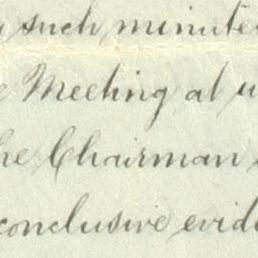 such minutes
Meeting at
the Chairman
conclusive evide